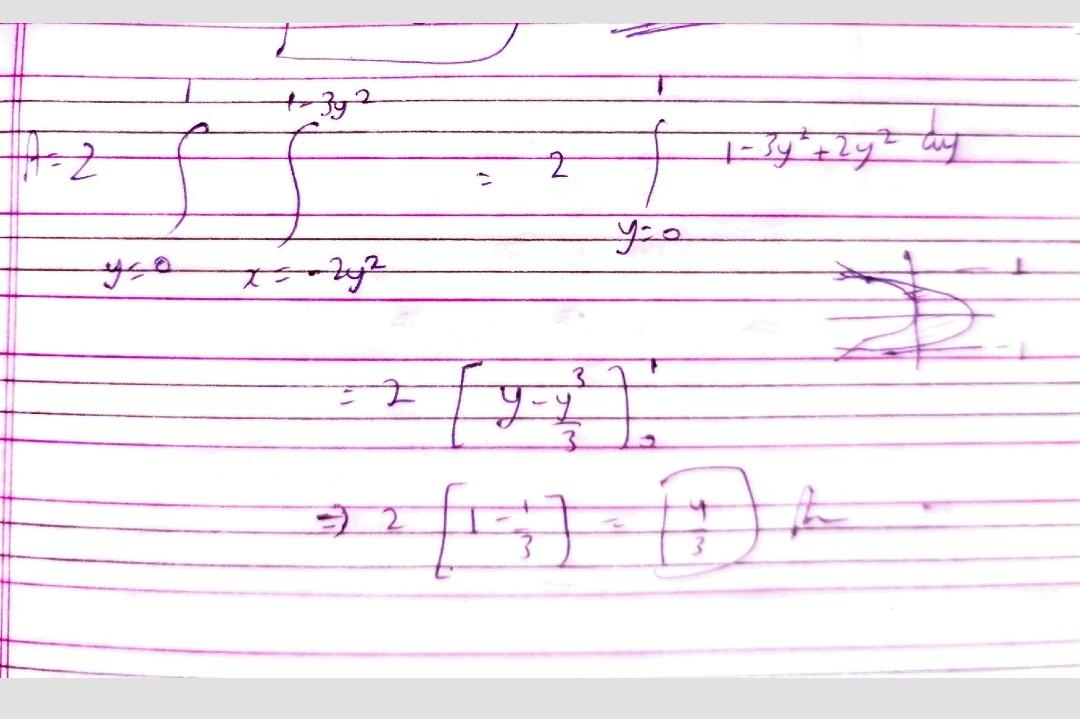 A = 2 ∫_{y=0}^{1} ∫_{x=-2y²}^{1-3y²} = 2 ∫_{y=0}^{1} 1-3y²+2y² dy
1
-1
= 2 [y - y³/3]₀¹
⇒ 2 [1 - 1/3] = 4/3